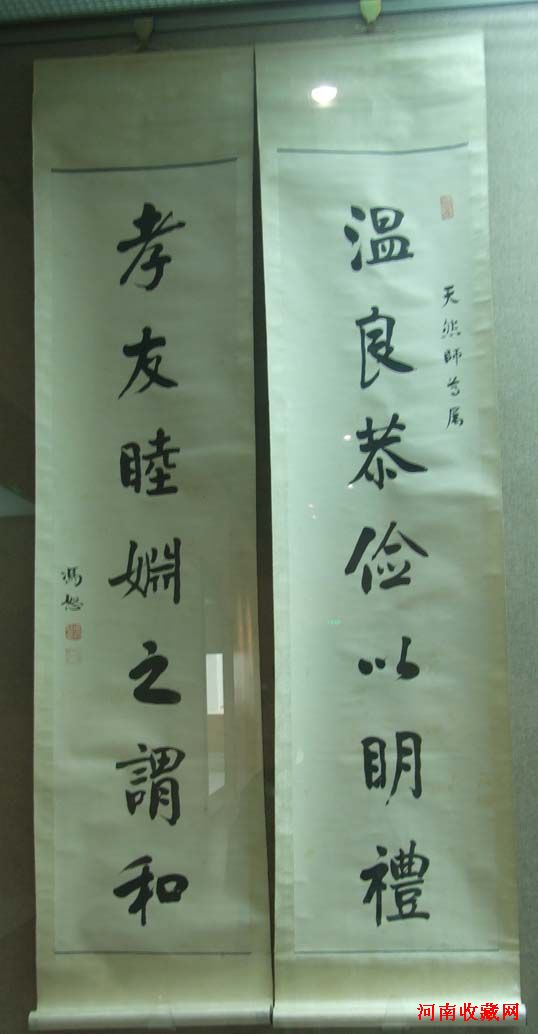 天然師尊属
温良恭俭以明禮
孝友睦婣之謂和
馮恕
河南收藏网